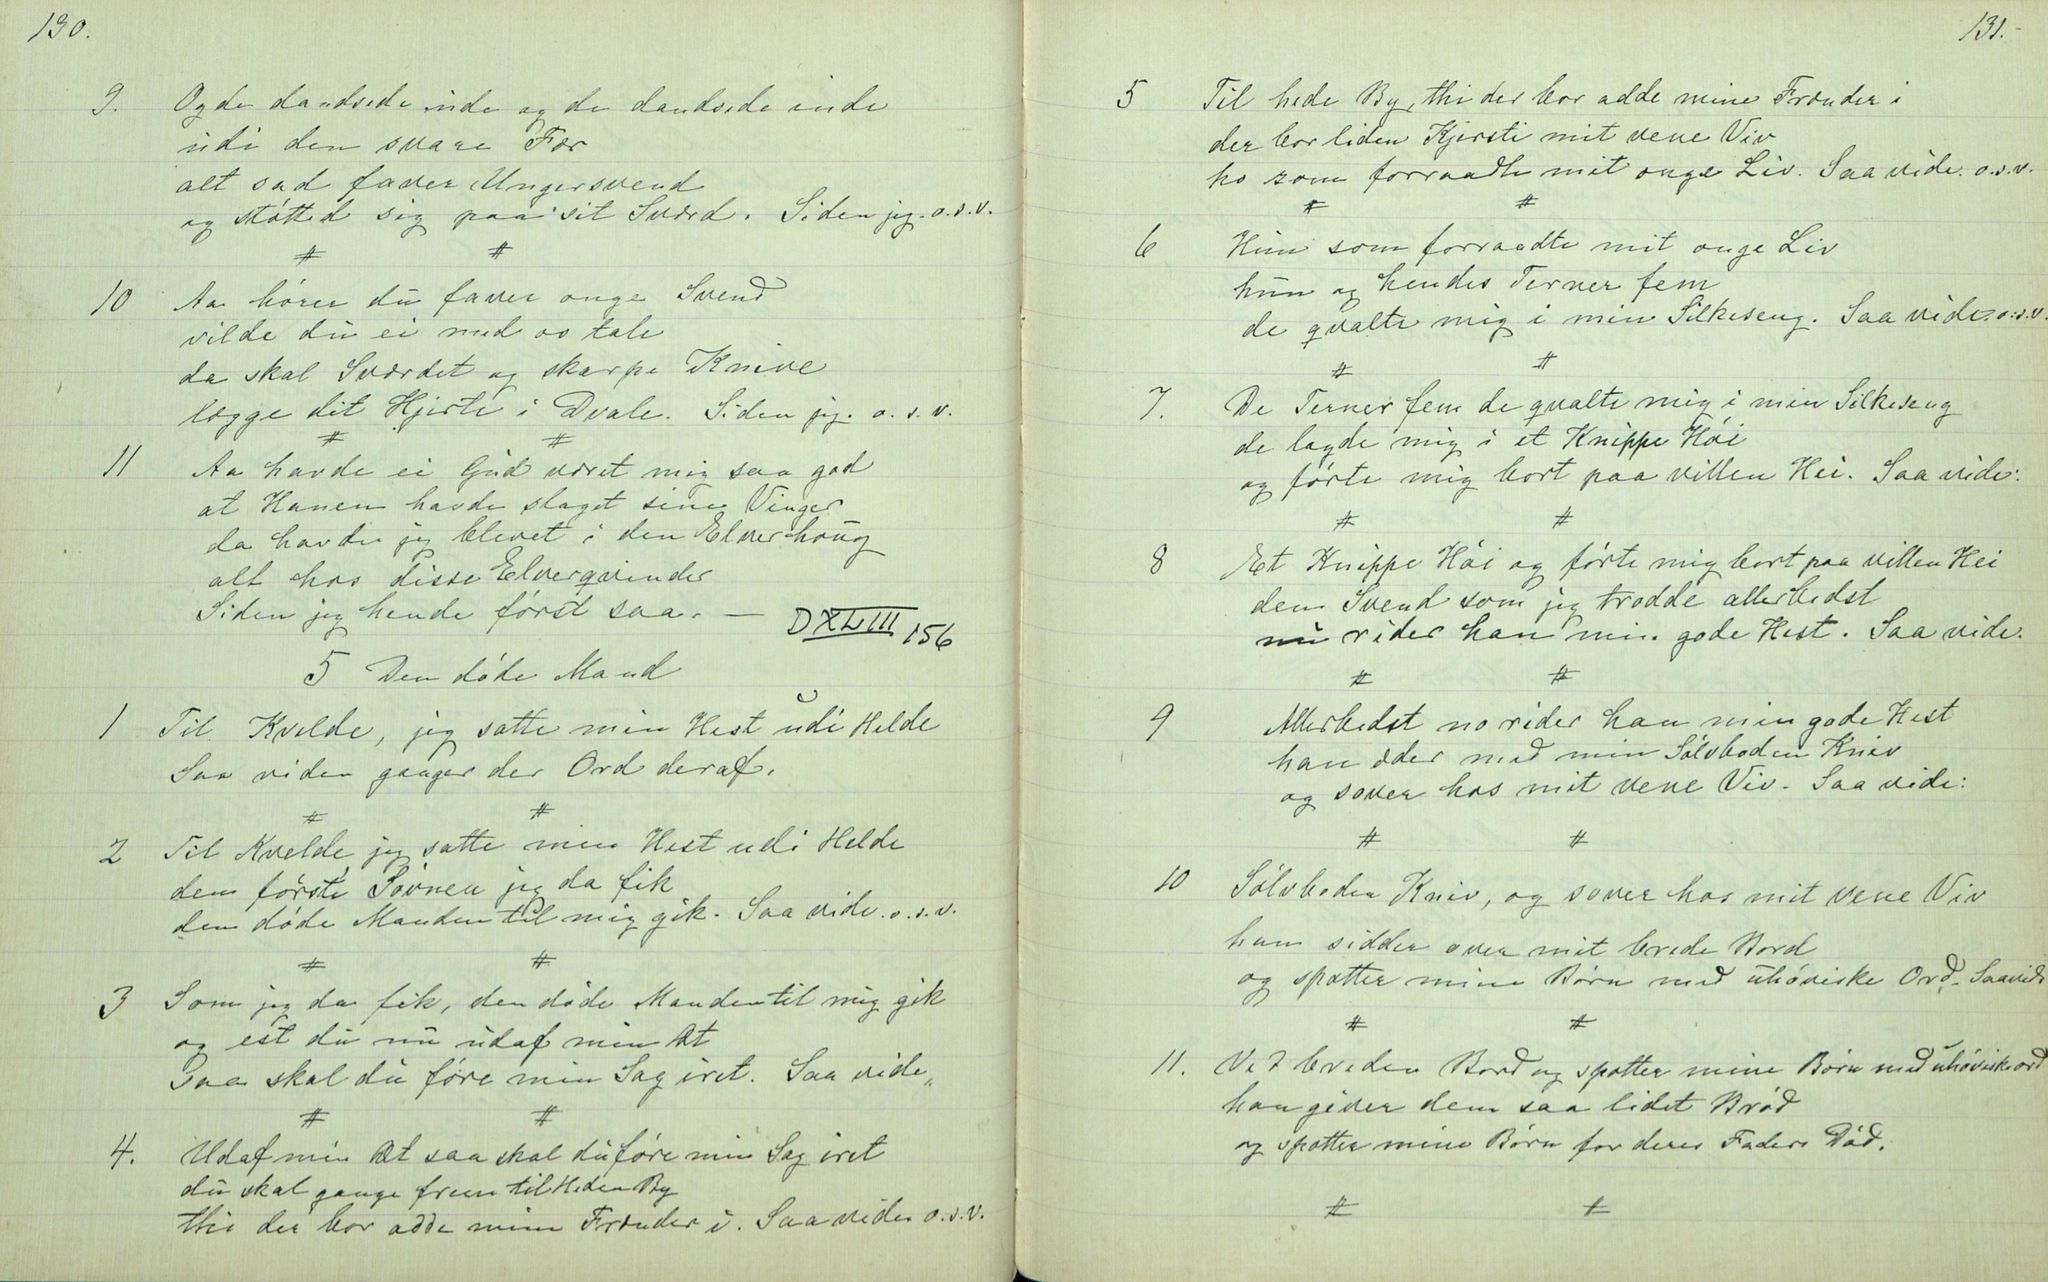 130.
9. Og de dandsede inde og de dandsede inde
udi den svare Fær
alt sad faver Ungersvend
og støtted sig paa sit Sværd. Siden jeg. o.s.v.
# #
10 Aa hører du faver onge Svend
vilde du ei med os tale
da skal Sværdet og skarpe Knive
lægge dit Hjerte i Dvale. Siden jeg. o. s. v.
# #
11 Aa havde ei Gud været mig saa god
at Hanen havde slaget sine Vinger
da havde jeg blevet i den Elverhoug
alt hos disse Elverqvinder
Siden jeg hende først saa. —
DXLIII 156
5 Den døde Mand
1 Til Kvelde, jeg satte min Hest udi Helde
Saa viden gaager der Ord deraf.
# #
2 Til Kvelde jeg satte min Hest udi Helde
den første Søvnen jeg da fik
den døde Manden til mig gik. Saa vide. o.s.v.
# #
3 Som jeg da fik, den døde Manden til mig gik
og est du nu udaf min Æt
Saa skal du føre min Sag iret. Saa vide„
# #
4. Udaf min Æt saa skal du føre min Sag iret
du skal gange frem til Heden By
thi der bor adde mine Frænder i. Saa vide o.s.v.
131.
5 Til hede By, thi der bor adde mine Frænder i
der bor liden Kjersti mit vene Viv
ho som forraadte mit onge Liv. Saa vide. o.s.v.
# #
6 Hun som forraadte mit onge Liv
hun og hendes Terner fem
de qvalte mig i min Silkeseng. Saa vide. o.s.v.
# #
7. De Terner fem de qvalte mig i min Silkeseng
de lagde mig i et Knippe Høi
og førte mig bort paa villen Hei. Saa vide:
# #
8 Et Knippe Høi og førte mig bort paa villen Hei
den Svend som jeg trodde allerbedst
nu rider han min gode Hest. Saa vide.
# #
9 Allerbedst no rider han min gode Hest
han æder med min Sølvboden Kniv
og sover hos mit vene Viv. Saa vide:
# #
10 Sølvboden Kniv, og sover hos mit vene Viv
han sidder over mit brede Bord
og spotter mine Børn med uhøviske Ord. Saavide
# #
11. Ved breden Bord og spotter mine Børn med uhøviske ord
han giver dem saa lidet Brød
og spotter mine Børn for deres Faders Død.
# #